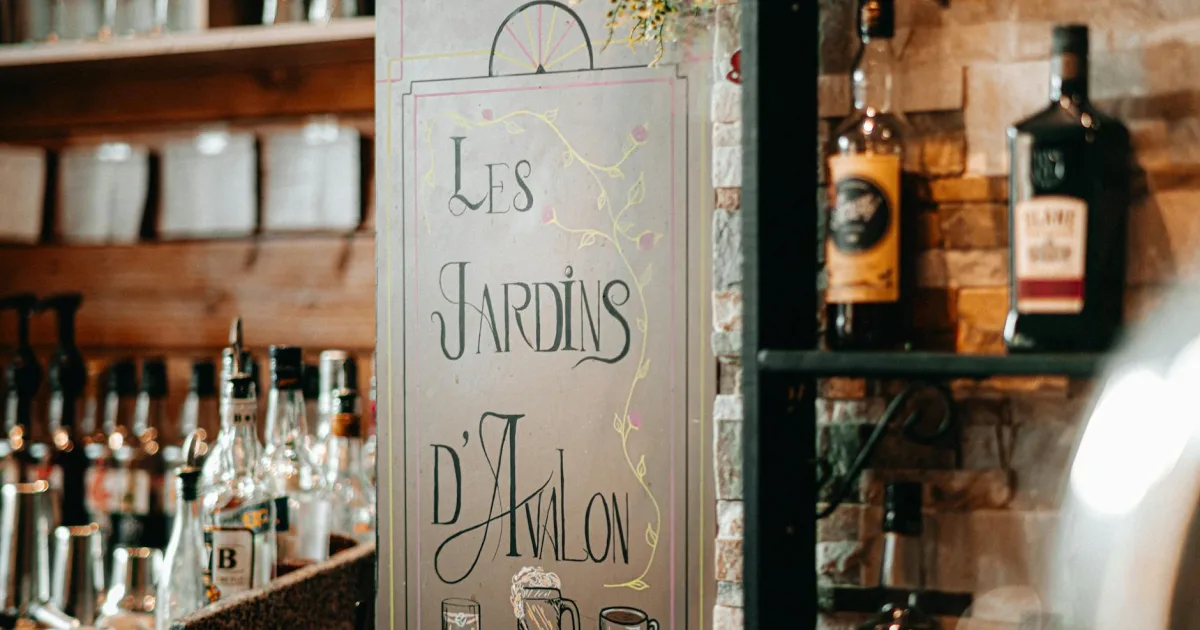 LES
JARDINS
D'AVALON
B